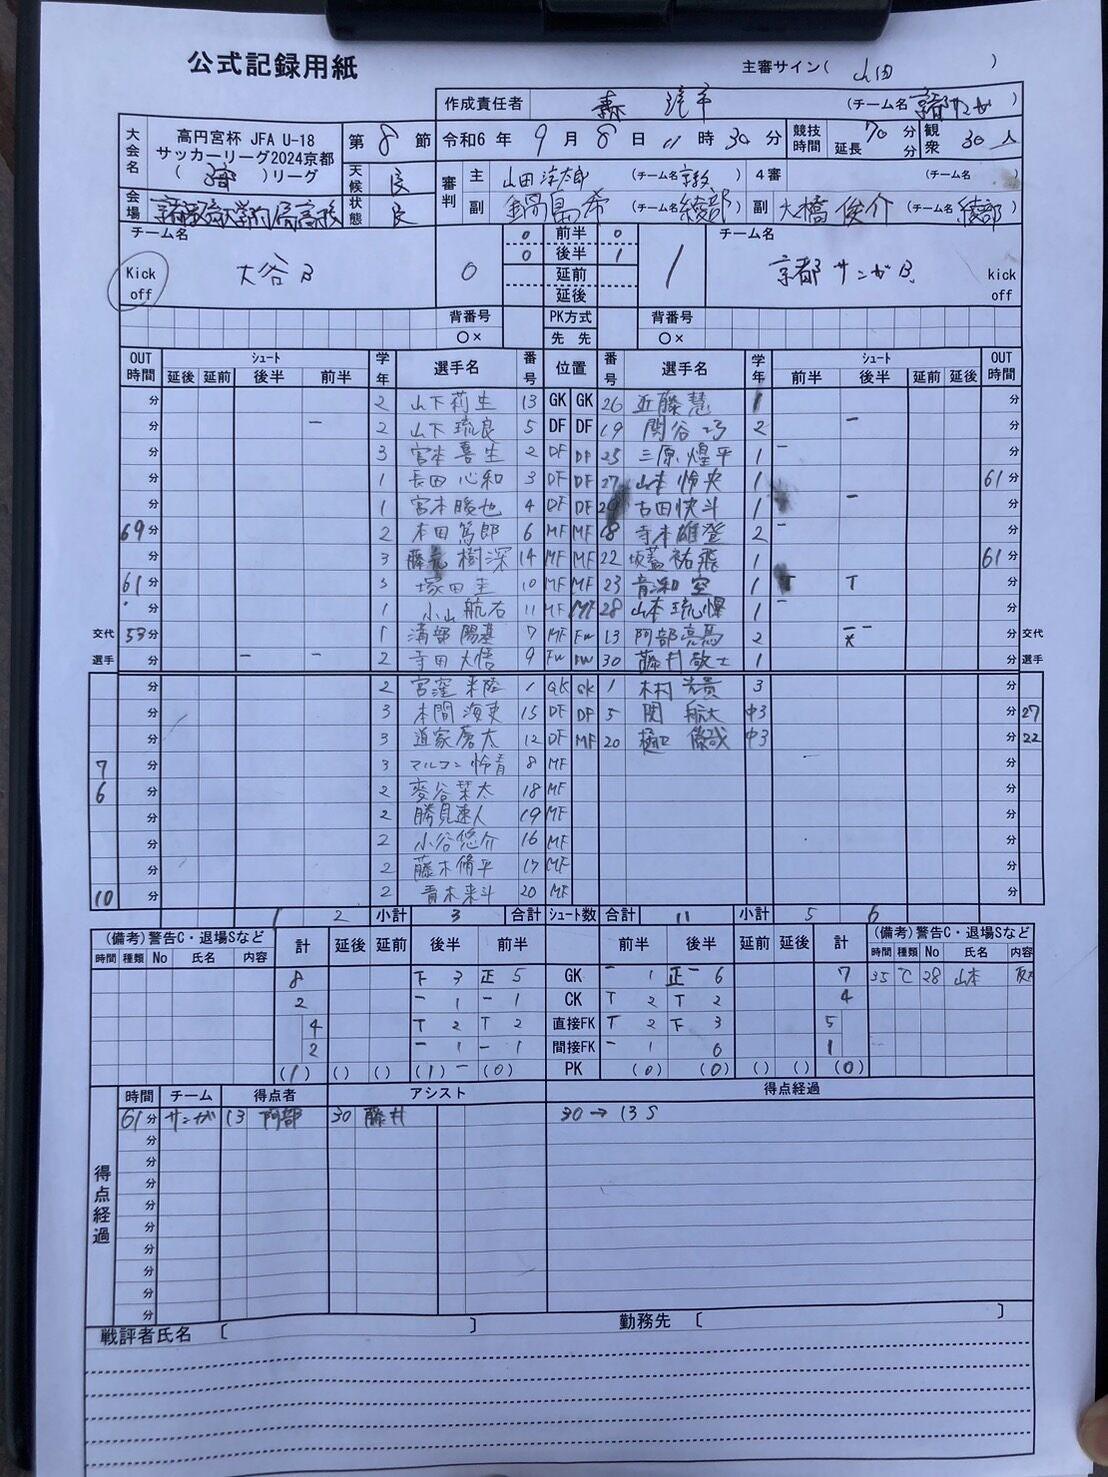 公式記録用紙
主審サイン( 山田 )
作成責任者 (チーム名 京都サンガ )
大会名 高円宮杯 JFA U-18 サッカーリーグ2024京都 ( 3部 )リーグ 第 8 節 令和6 年 9 月 8 日 11 時 30 分 競技時間 70 分 延長 分 観衆 30 人
天候 良 審判 主 山田 (チーム名 ) 4審 (チーム名 )
会場 状態 良 副 (チーム名 綾部 ) 副 大橋 俊介 (チーム名 綾部 )
チーム名 0 前半 0 チーム名
Kick off 大谷 B 0 0 後半 1 1 京都サンガB. kick off
延前
延後
背番号 PK方式 背番号
○× 先 先 ○×
OUT時間 シュート 学年 選手名 番号 位置 番号 選手名 学年 シュート OUT時間
延後 延前 後半 前半 前半 後半 延前 延後
分 2 山下莉生 13 GK GK 26 近藤慧 1 分
分 一 2 山下琉良 5 DF DF 19 関谷巧 2 一 分
分 3 宮本喜生 2 DF DF 25 三原煌平 1 一 分
分 1 長田心和 3 DF DF 27 山本怜央 1 61分
分 1 宮本暖也 4 DF DF 29 古田快斗 1 一 分
69分 2 本田篤郎 6 MF MF 18 寺本雄登 2 一 分
分 3 藤元樹深 14 MF MF 22 坂蓋祐飛 1 61分
61分 3 塚田圭 10 MF MF 23 音淵空 1 T T 分
分 1 小山航右 11 MF MF 28 山本琉煇 1 一 分
交代 53分 1 溝部陽基 7 MF FW 13 阿部亮馬 2 分 交代
選手 分 一 一 2 寺田大悟 9 FW FW 30 藤井敬士 1 分 選手
分 2 宮窪来陸 1 GK GK 1 木村光貴 3 分
分 3 本間海吏 15 DF DF 5 関航大 中3 分 27
分 3 道家蒼太 12 DF MF 20 樋口 中3 分 22
7 分 3 マルコン怜青 8 MF 分
6 分 2 麥谷栞太 18 MF 分
分 2 勝見速人 19 MF 分
分 2 小谷悠介 16 MF 分
分 2 藤木脩平 17 MF 分
10 分 2 青木来斗 20 MF 分
1 2 小計 3 合計 シュート数 合計 11 小計 5 6
(備考)警告C・退場Sなど 計 延後 延前 後半 前半 前半 後半 延前 延後 計 (備考)警告C・退場Sなど
時間 種類 No 氏名 内容 時間 種類 No 氏名 内容
8 下 3 正 5 GK 一 1 正一 6 7 35 C 28 山本
2 一 1 一 1 CK T 2 T 2 4
4 T 2 T 2 直接FK T 2 下 3 5
2 一 1 一 1 間接FK 一 1 0 1
(1) () () (1) 一 (0) PK (0) (0) () () (0)
得点経過 時間 チーム 得点者 アシスト 得点経過
61分 サンガ 13 阿部 30 藤井 30 → 13 S
分
分
分
分
分
分
分
分
分
戦評者氏名 〔 〕 勤務先 〔 〕